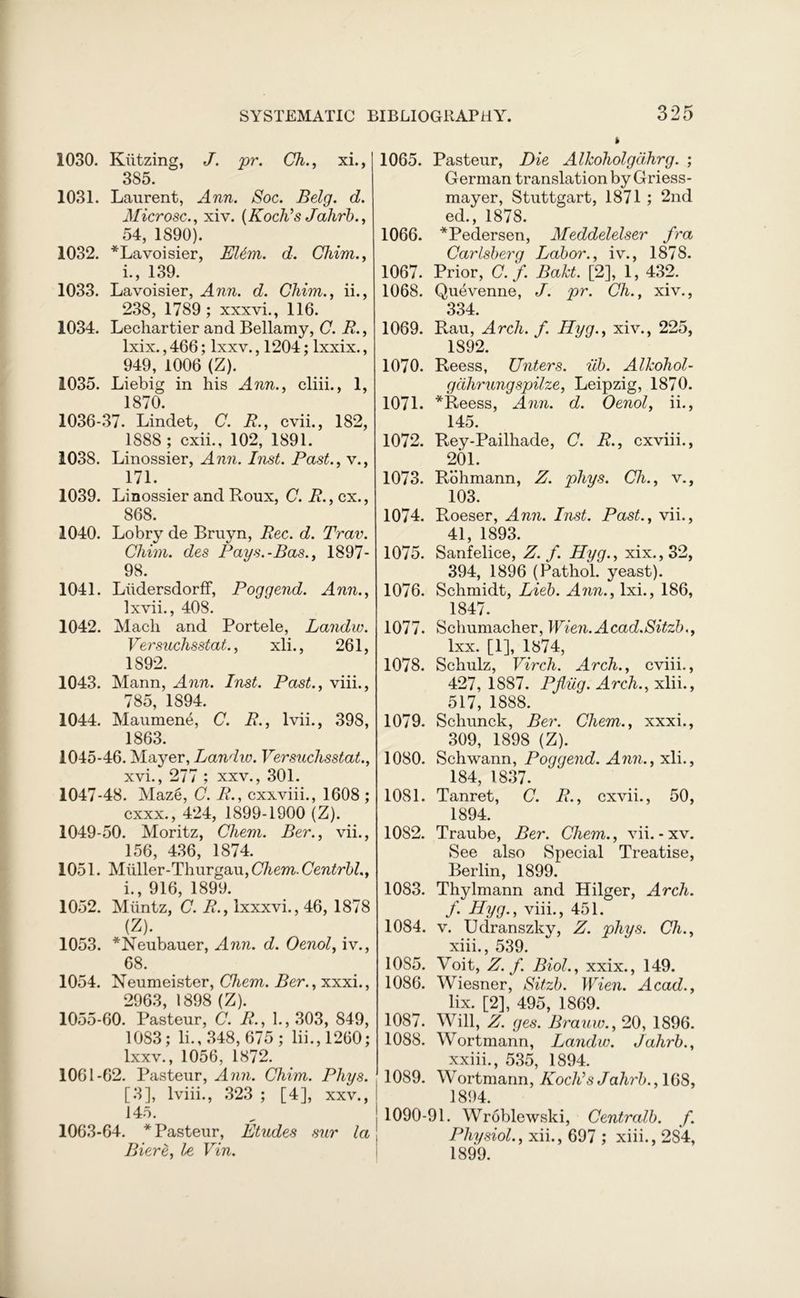 SYSTEMATIC BIBLIOGRAPHY.
325
1030. Kützing, J. pr. Ch., xi.,
385.
1031. Laurent, Ann. Soc. Belg. d.
Microsc., xiv. (Koch's Jahrb.,
54, 1890).
1032. *Lavoisier, Elém. d. Chim.,
i., 139.
1033. Lavoisier, Ann. d. Chim., ii.,
238, 1789; xxxvi., 116.
1034. Lechartier and Bellamy, C. R.,
lxix., 466; lxxv., 1204; lxxix.,
949, 1006 (Z).
1035. Liebig in his Ann., cliii., 1,
1870.
1036-37. Lindet, C. R., cvii., 182,
1888; cxii., 102, 1891.
1038. Linossier, Ann. Inst. Past., v.,
171.
1039. Linossier and Roux, C. R., cx.,
868.
1040. Lobry de Bruyn, Rec. d. Trav.
Chim. des Pays.-Bas., 1897-
98.
1041. Lüdersdorff, Poggend. Ann.,
lxvii., 408.
1042. Mach and Portele, Landw.
Versuchsstat., xli., 261,
1892.
1043. Mann, Ann. Inst. Past., viii.,
785, 1894.
1044. Maumené, C. R., lvii., 398,
1863.
1045-46. Mayer, Landw. Versuchsstat.,
xvi., 277; xxv., 301.
1047-48. Mazé, C. R., cxxviii., 1608;
cxxx., 424, 1899-1900 (Z).
1049-50. Moritz, Chem. Ber., vii.,
156, 436, 1874.
1051. Müller-Thurgau, Chem. Centrbl.,
i., 916, 1899.
1052. Müntz, C. R., lxxxvi., 46, 1878
(Z).
1053. *Neubauer, Ann. d. Oenol, iv.,
68.
1054. Neumeister, Chem. Ber., xxxi.,
2963, 1898 (Z).
1055-60. Pasteur, C. R., l., 303, 849,
1083; li., 348, 675; lii., 1260;
lxxv., 1056, 1872.
1061-62. Pasteur, Ann. Chim. Phys.
[3], lviii., 323; [4], xxv.,
145.
1063-64. *Pasteur, Études sur la
Bierè, le Vin.
1065. Pasteur, Die Alkoholgährg.;
German translation by Griess-
mayer, Stuttgart, 1871; 2nd
ed., 1878.
1066. *Pedersen, Meddelelser fra
Carlsberg Labor., iv., 1878.
1067. Prior, C. f. Bakt. [2], 1, 432.
1068. Quévenne, J. pr. Ch., xiv.,
334.
1069. Rau, Arch. f. Hyg., xiv., 225,
1892.
1070. Reess, Unters. üb. Alkohol-
gährungspilze, Leipzig, 1870.
1071. *Reess, Ann. d. Oenol, ii.,
145.
1072. Rey-Pailhade, C. R., cxviii.,
201.
1073. Röhmann, Z. phys. Ch., v.,
103.
1074. Roeser, Ann. Inst. Past., vii.,
41, 1893.
1075. Sanfelice, Z. f. Hyg., xix., 32,
394, 1896 (Pathol. yeast).
1076. Schmidt, Lieb. Ann., lxi., 186,
1847.
1077. Schumacher, Wien. Acad. Sitzb.,
lxx. [1], 1874,
1078. Schulz, Virch. Arch., cviii.,
427, 1887. Pflüg. Arch., xlii.,
517, 1888.
1079. Schunck, Ber. Chem., xxxi.,
309, 1898 (Z).
1080. Schwann, Poggend. Ann., xli.,
184, 1837.
1081. Tanret, C. R., cxvii., 50,
1894.
1082. Traube, Ber. Chem., vii.-xv.
See also Special Treatise,
Berlin, 1899.
1083. Thylmann and Hilger, Arch.
f. Hyg., viii., 451.
1084. v. Udranszky, Z. phys. Ch.,
xiii., 539.
1085. Voit, Z. f. Biol., xxix., 149.
1086. Wiesner, Sitzb. Wien. Acad.,
lix. [2], 495, 1869.
1087. Will, Z. ges. Brauw., 20, 1896.
1088. Wortmann, Landw. Jahrb.,
xxiii., 535, 1894.
1089. Wortmann, Koch's Jahrb., 168,
1894.
1090-91. Wróblewski, Centralb. f.
Physiol., xii., 697; xiii., 284,
1899.